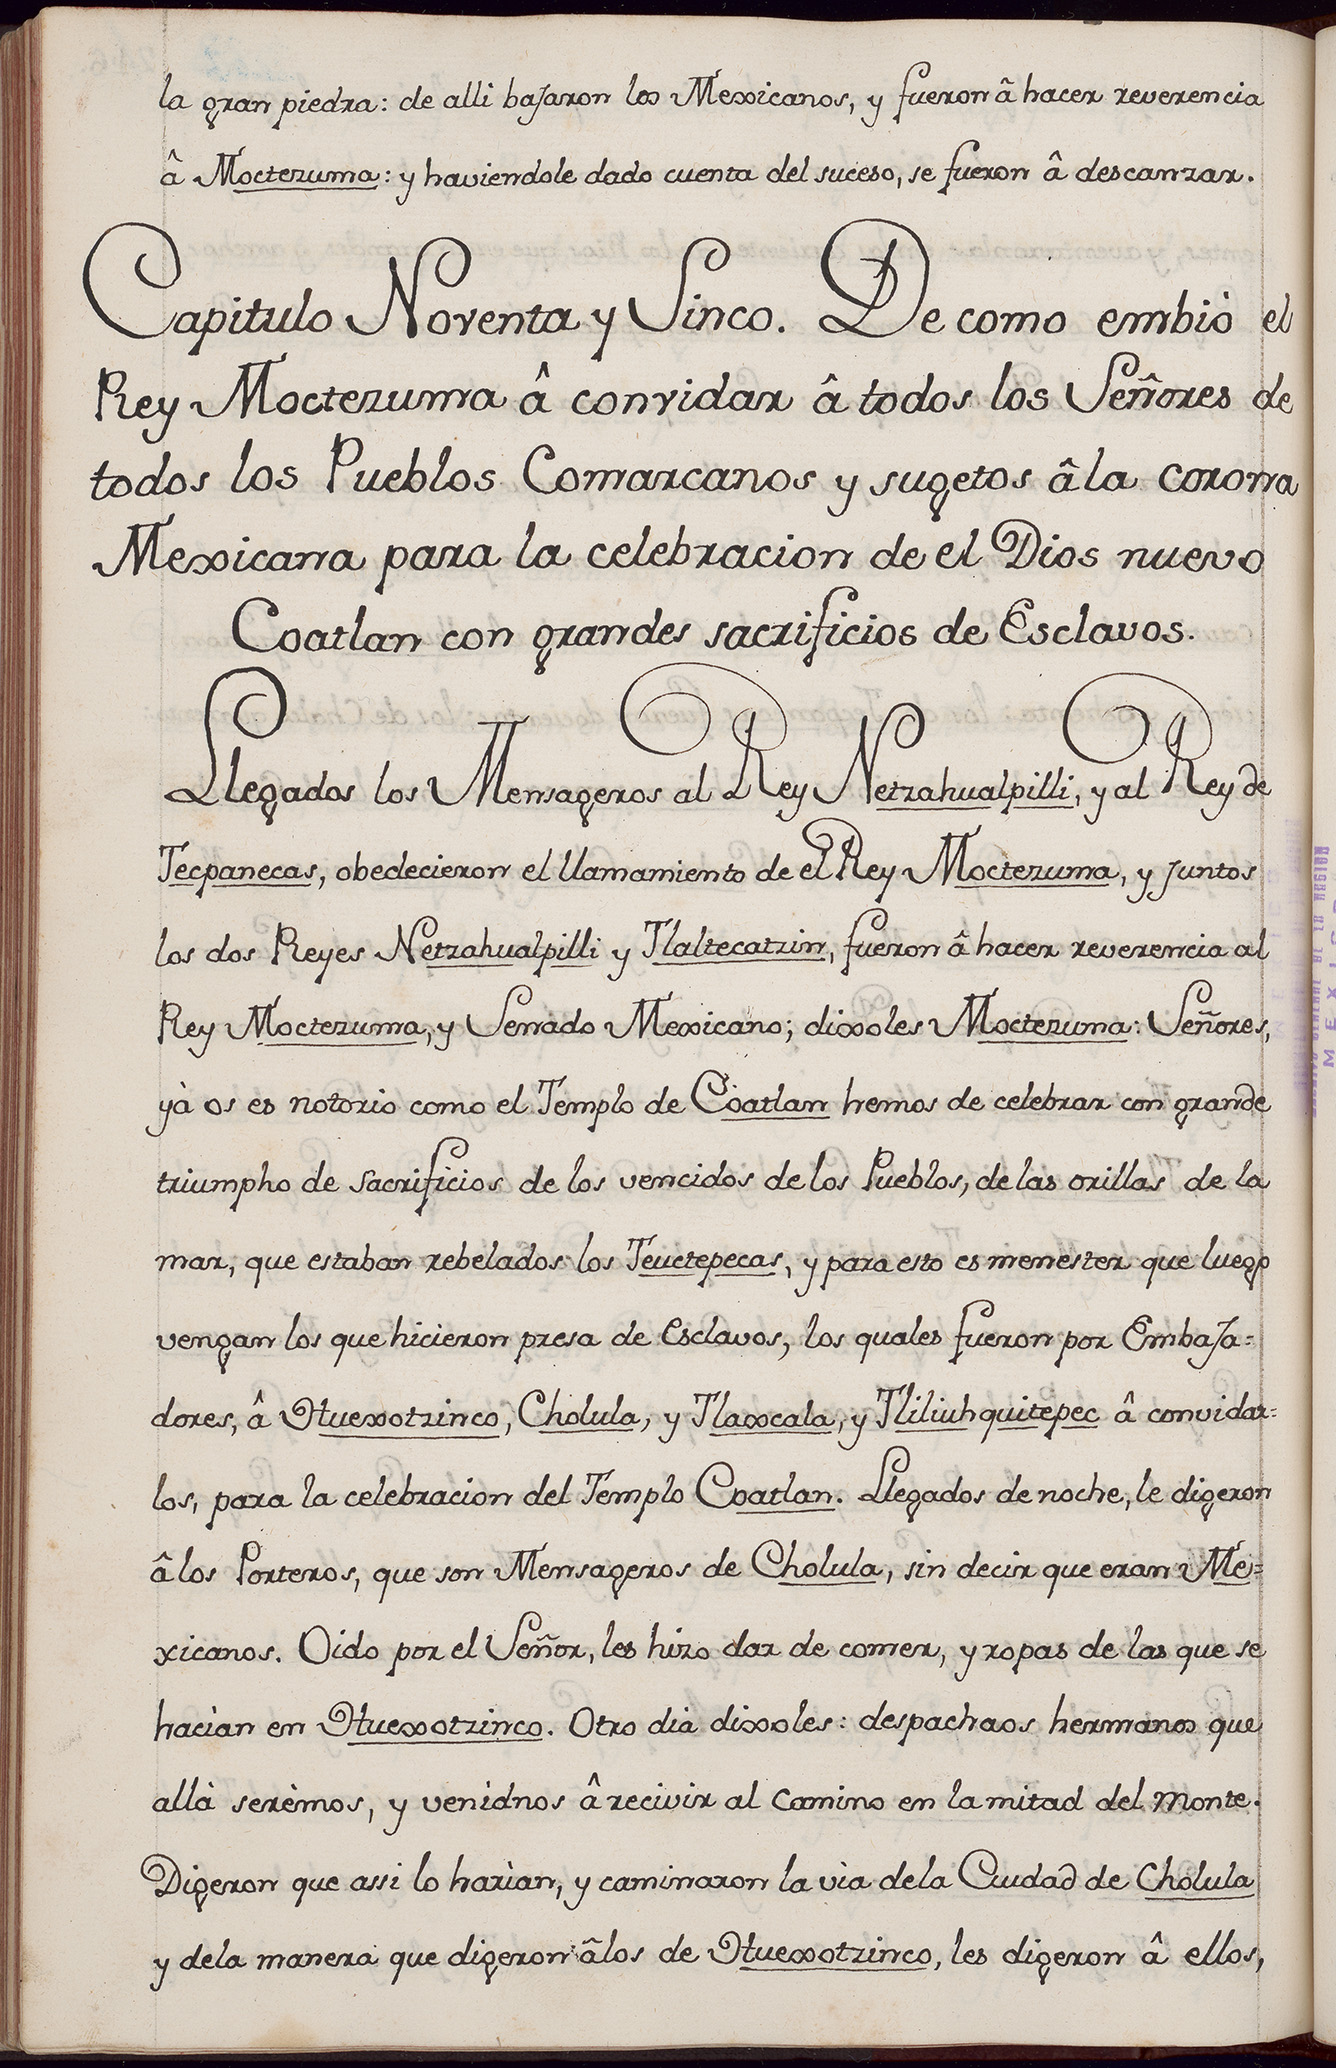 la gran piedra: de alli bajaron los Mexicanos, y fueron â hacer reverencia
â Moctezuma: y haviendole dado cuenta del suceso, se fueron â descanzar.
Capitulo Noventa y Sinco. De como embiò el
Rey Moctezuma â convidar â todos los Señores de
todos los Pueblos Comarcanos y sugetos â la corona
Mexicana para la celebracion de el Dios nuevo
Coatlan con grandes sacrificios de Esclavos.
Llegados los Mensageros al Rey Netzahualpilli, y al Rey de
Tecpanecas, obedecieron el llamamiento de el Rey Moctezuma, y juntos
los dos Reyes Netzahualpilli y Tlaltecatzin, fueron â hacer reverencia al
Rey Moctezuma, y Senado Mexicano; dixoles Moctezuma: Señores,
yà os es notorio como el Templo de Coatlan hemos de celebrar con grande
triumpho de sacrificios de los vencidos de los Pueblos, de las orillas de la
mar, que estaban rebelados los Teuctepecas, y para esto es menester que luego
vengan los que hicieron presa de Esclavos, los quales fueron por Embaja=
dores, â Huexotzinco, Cholula, y Tlaxcala, y Tliliuhquitepec â convidar=
los, para la celebracion del Templo Coatlan. Llegados de noche, le digeron
â los Porteros, que son Mensageros de Cholula, sin decir que eran Me=
xicanos. Oido por el Señor, les hizo dar de comer, y ropas de las que se
hacìan en Huexotzinco. Otro dià dixoles: despachaos hermanos que
allà serèmos, y venidnos â recivir al camino en la mitad del monte.
Digeron que assi lo harìan, y caminaron la vìa dela Ciudad de Cholula
y dela manera que digeron âlos de Huexotzinco, les digeron â ellos,